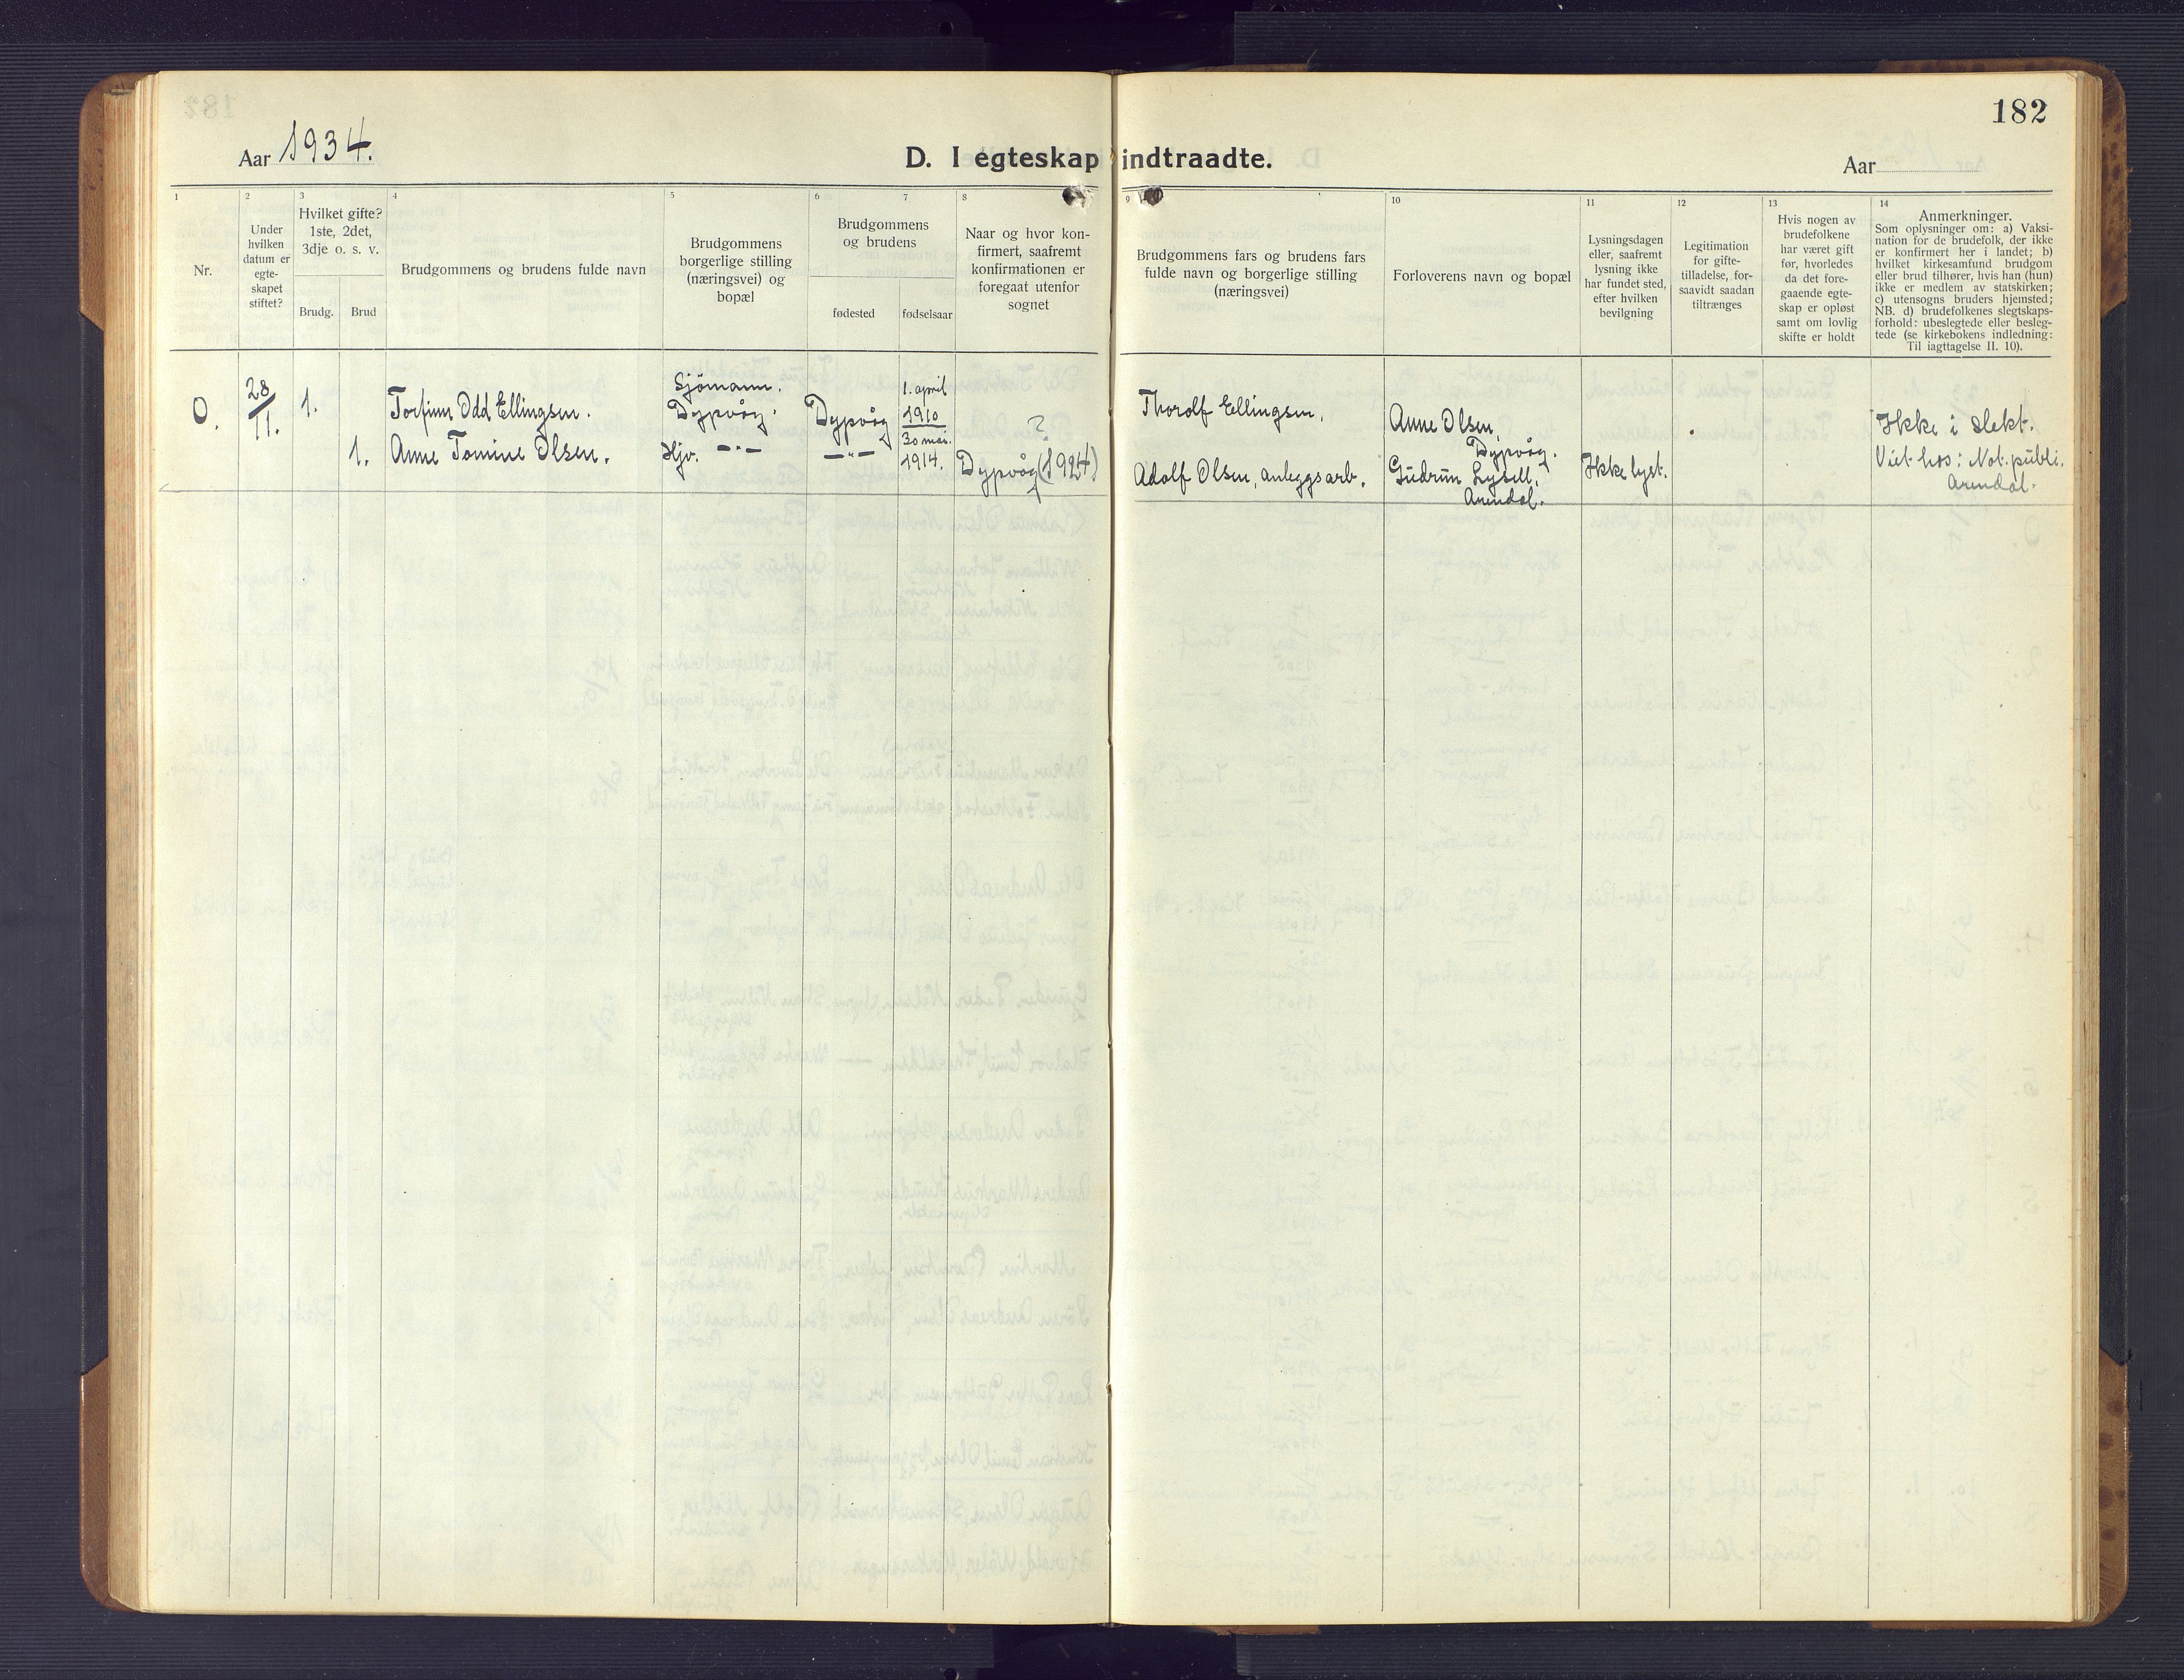 182
Aar 1934.
D. I egteskap indtraadte.
Aar
1
2
3
4
5
6
7
8
9
10
11
12
13
14
Nr.
Under
hvilken
datum er
egte-
skapet
stiftet?
Hvilket gifte?
1ste, 2det,
3dje o. s. v.
Brudg.
Brud
Brudgommens og brudens fulde navn
Brudgommens
borgerlige stilling
(næringsvei) og
bopæl
Brudgommens
og brudens
fødested
fødselsaar
Naar og hvor kon-
firmert, saafremt
konfirmationen er
foregaat utenfor
sognet
Brudgommens fars og brudens fars
fulde navn og borgerlige stilling
(næringsvei)
Forloverens navn og bopæl
Lysningsdagen
eller, saafremt
lysning ikke
har fundet sted,
efter hvilken
bevilgning
Legitimation
for gifte-
tilladelse, for-
saavidt saadan
tiltrænges
Hvis nogen av
brudefolkene
har været gift
før, hvorledes
da det fore-
gaaende egte-
skap er opløst
samt om lovlig
skifte er holdt
Anmerkninger.
Som oplysninger om: a) Vaksi-
nation for de brudefolk, der ikke
er konfirmert her i landet; b)
hvilket kirkesamfund brudgom
eller brud tilhører, hvis han (hun)
ikke er medlem av statskirken;
c) utensogns bruders hjemsted;
NB. d) brudefolkenes slegtskaps-
forhold: ubeslegtede eller besleg-
tede (se kirkebokens indledning:
Til iagttagelse II. 10).
O.
28
11.
1.
Torfinn Odd Ellingsen.
Sjømann.
Dypvåg.
Dypvåg
1. april
1910
?
1.
Anne Tomine Olsen.
Hjv. -"-
-"-
30 mai.
1914.
Dypvåg (1924)
Thorolf Ellingsen.
Adolf Olsen, anleggsarb.
Anne Olsen,
Dypvåg.
Gudrun Lysell,
Arendal.
Ikke lyst.
Ikke i slekt.
Viet hos: Not. publi.
Arendal.